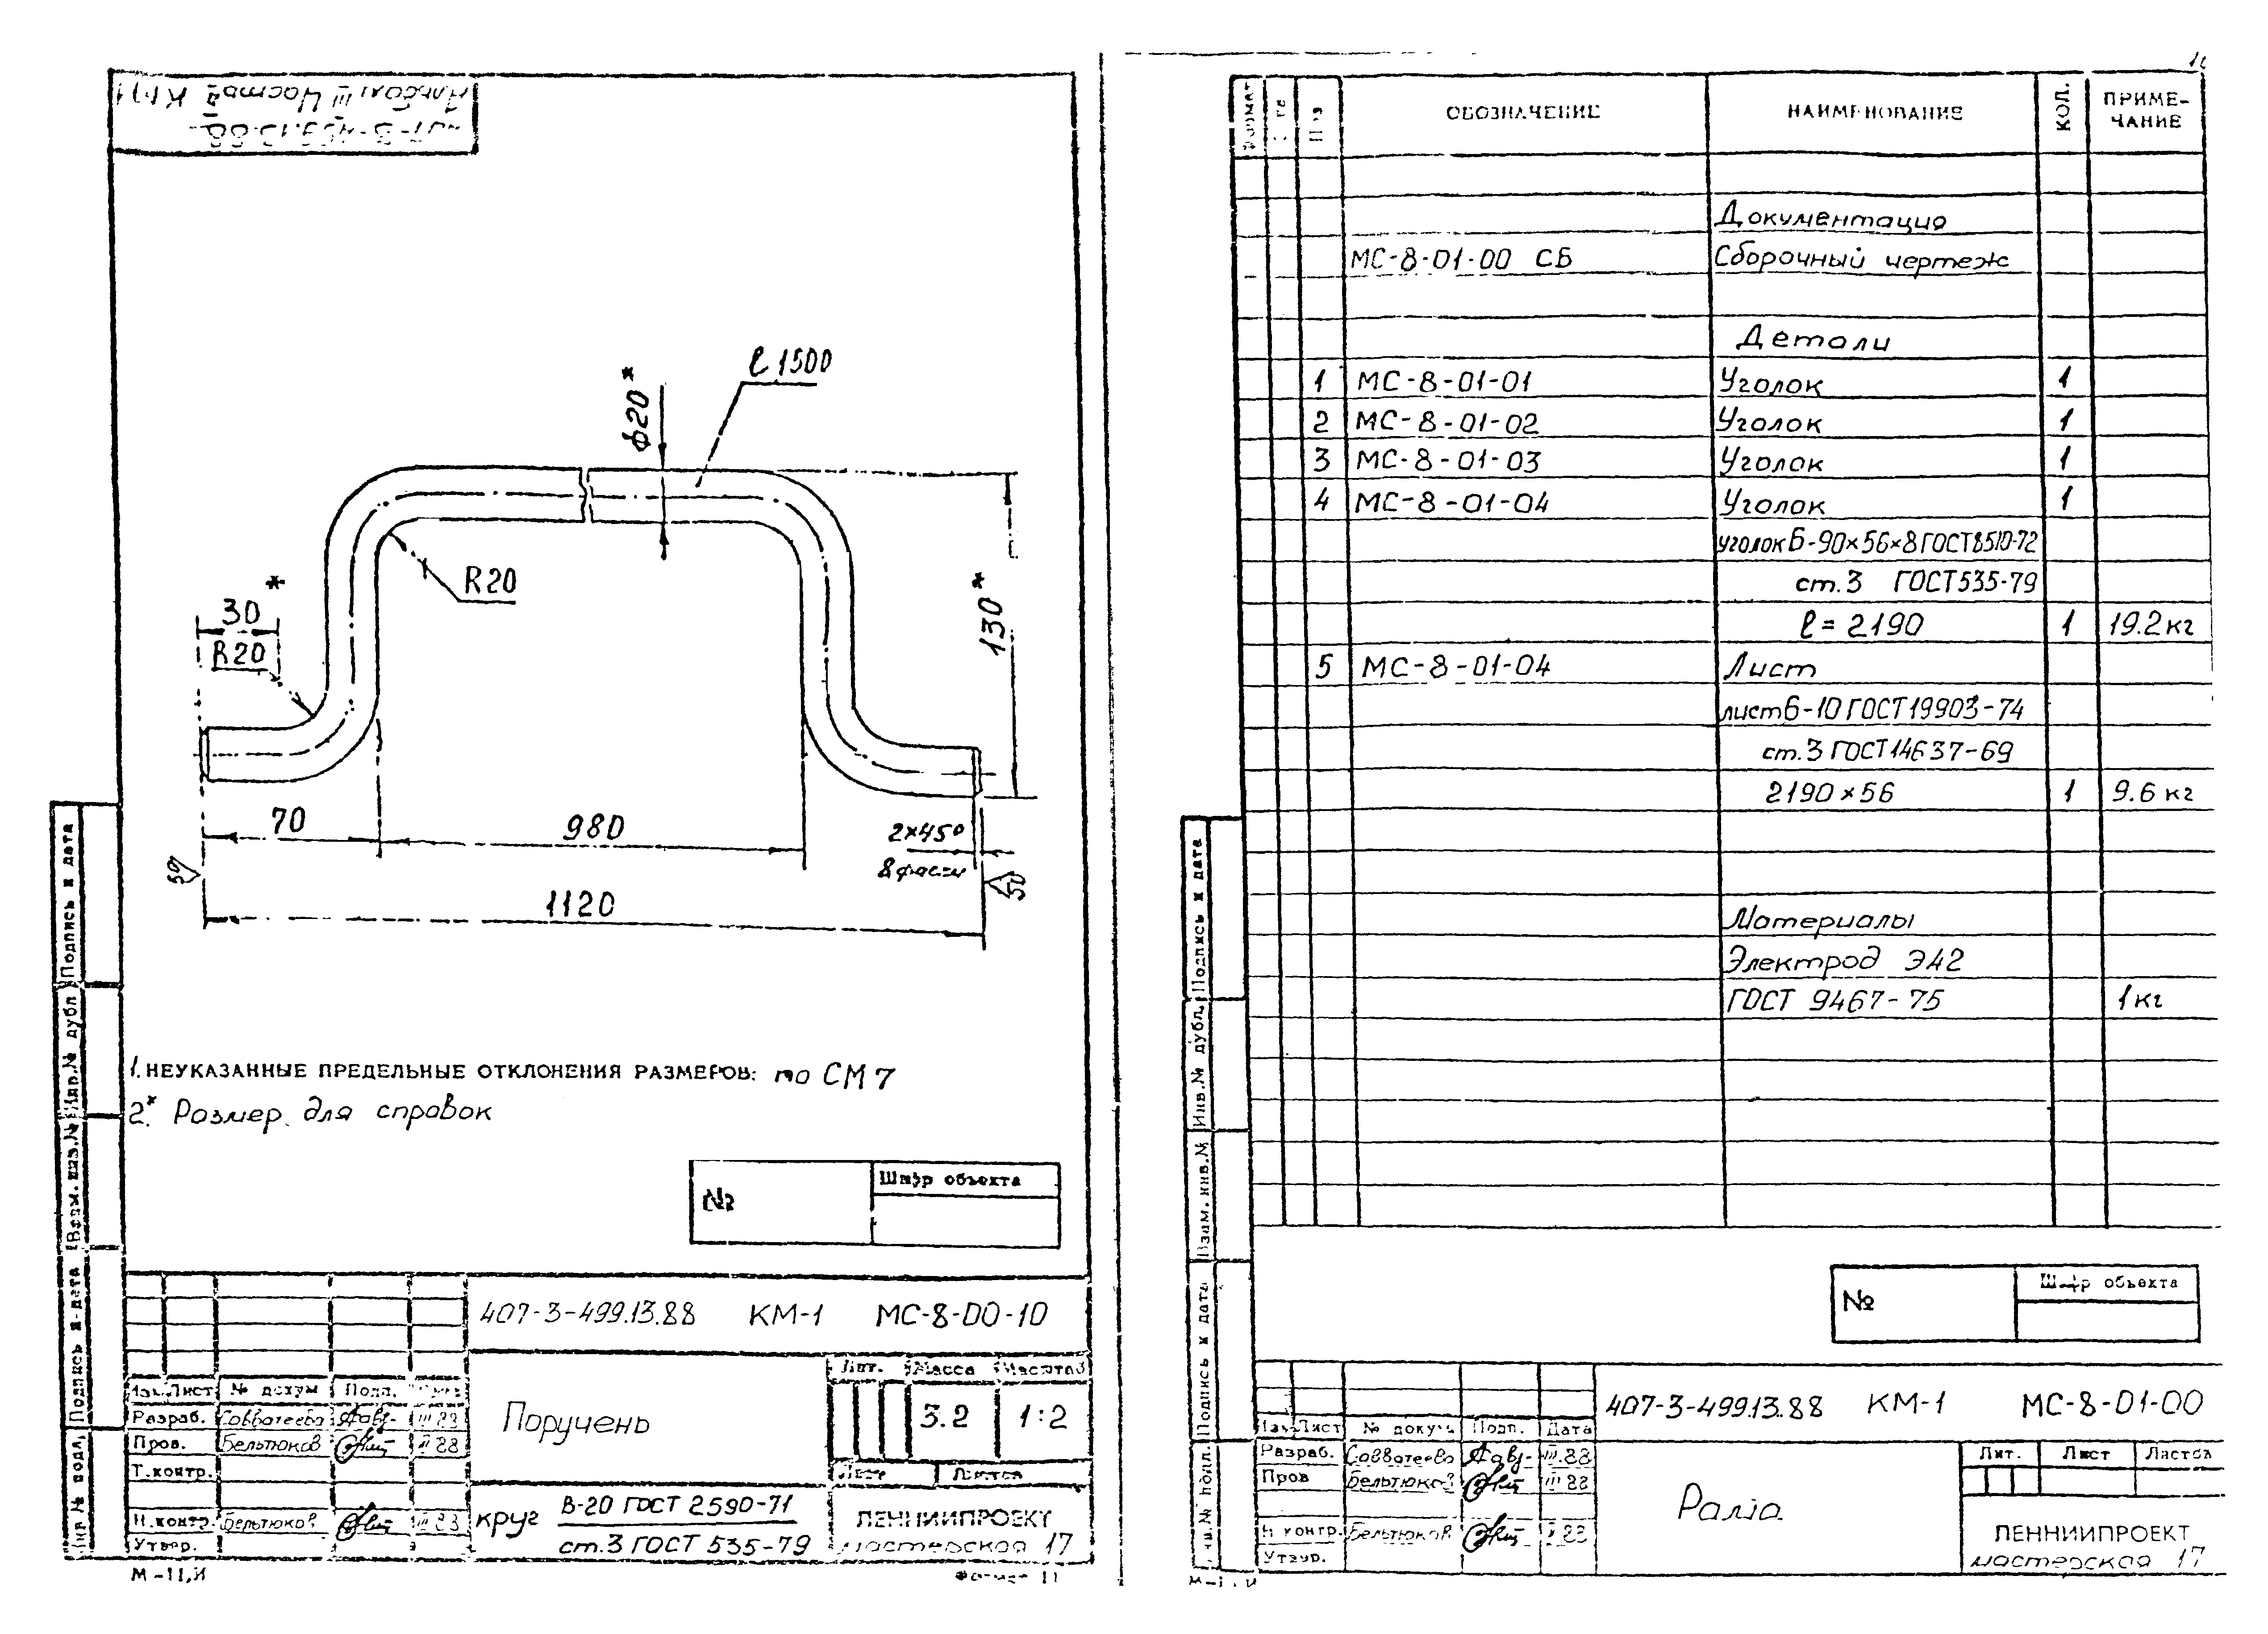 Альбом III Частей КМ1
407-3-499.13.88
ℓ 1500
ϕ20*
R20
30*
R20
130*
70
980
2×45°
2 фаски
50
50
1120
1. НЕУКАЗАННЫЕ ПРЕДЕЛЬНЫЕ ОТКЛОНЕНИЯ РАЗМЕРОВ: по СМ7
2.* Размер для справок
№
Шифр объекта
407-3-499.13.88 КМ-1 МС-8-00-10
Изм. Лист № докум Подп.
Разраб. Савватеева III 88
Пров. Бельтюков III 88
Т.контр.
Н.контр. Бельтюков III 88
Утвер.
Поручень
Лит. Масса Масштаб
3.2 1:2
Лист Листов
круг В-20 ГОСТ 2590-71
ст.3 ГОСТ 535-79
ЛЕННИИПРОЕКТ
мастерская 17
М-11,И
Формат 11
Подпись и дата
Инв.№ дубл
Взам.инв.№
Подпись и дата
Инв № подл.
Формат
Поз
ОБОЗНАЧЕНИЕ
НАИМЕНОВАНИЕ
КОЛ.
ПРИМЕ-
ЧАНИЕ
Документация
МС-8-01-00 СБ Сборочный чертеж
Детали
1 МС-8-01-01 Уголок 1
2 МС-8-01-02 Уголок 1
3 МС-8-01-03 Уголок 1
4 МС-8-01-04 Уголок 1
уголок Б-90×56×8 ГОСТ 8510-72
ст.3 ГОСТ 535-79
ℓ=2190 1 19.2 кг
5 МС-8-01-04 Лист
лист Б-10 ГОСТ 19903-74
ст.3 ГОСТ 14637-69
2190×56 1 9.6 кг
Материалы
Электрод Э42
ГОСТ 9467-75 1 кг
№
Шифр объекта
407-3-499.13.88 КМ-1 МС-8-01-00
Изм. Лист № докум Подп. Дата
Разраб. Савватеева III 88
Пров Бельтюков III 88
Н контр. Бельтюков III 88
Утвер.
Рама
Лит. Лист Листов
ЛЕННИИПРОЕКТ
мастерская 17
Подпись и дата
Инв.№ дубл.
Взам.инв.№
Подпись и дата
Инв.№ подл.